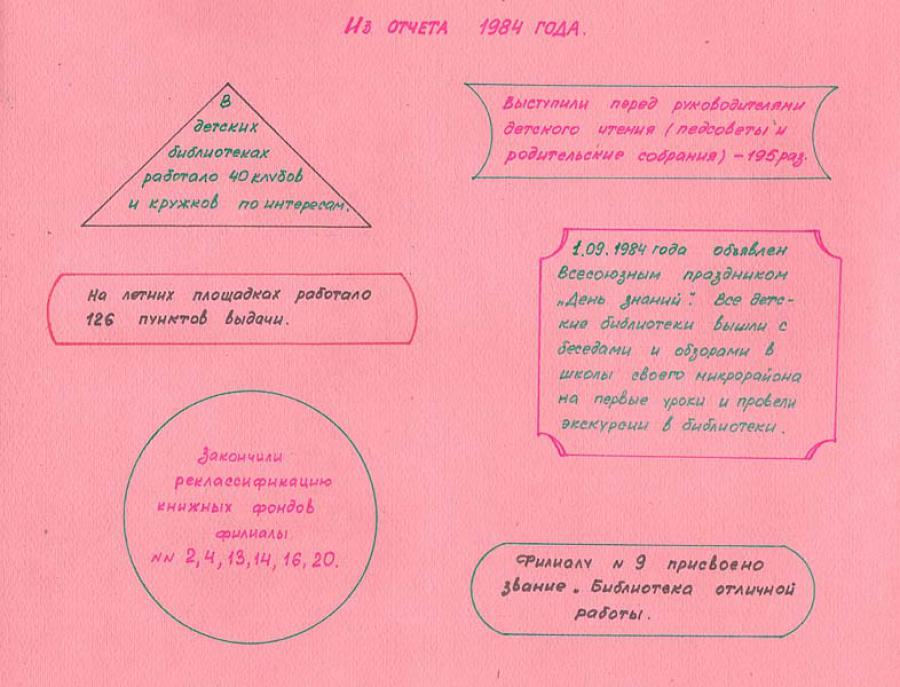 Из отчета 1984 года.
В
детских
библиотеках
работало 40 клубов
и кружков по интересам.
Выступили перед руководителями
детского чтения (педсоветы и
родительские собрания) – 195 раз.
На летних площадках работало
126 пунктов выдачи.
1.09.1984 года объявлен
Всесоюзным праздником
„День знаний". Все детс-
кие библиотеки вышли с
беседами и обзорами в
школы своего микрорайона
на первые уроки и провели
экскурсии в библиотеки.
Закончили
реклассификацию
книжных фондов
филиалы
NN 2, 4, 13, 14, 16, 20.
Филиалу N 9 присвоено
звание „Библиотека отличной
работы.